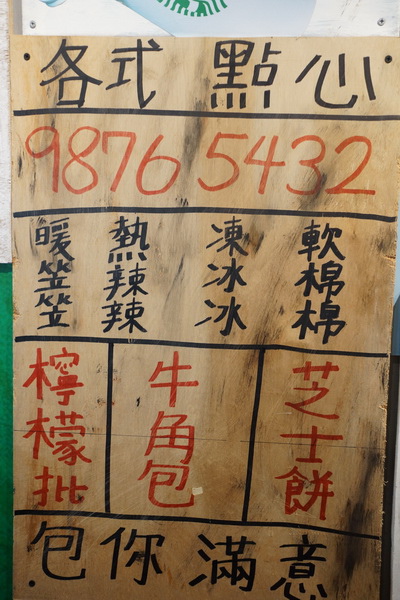 各式 點心
9876 5432
暖笠笠
熱辣辣
凍冰冰
軟棉棉
檸檬批
牛角包
芝士餅
包你滿意